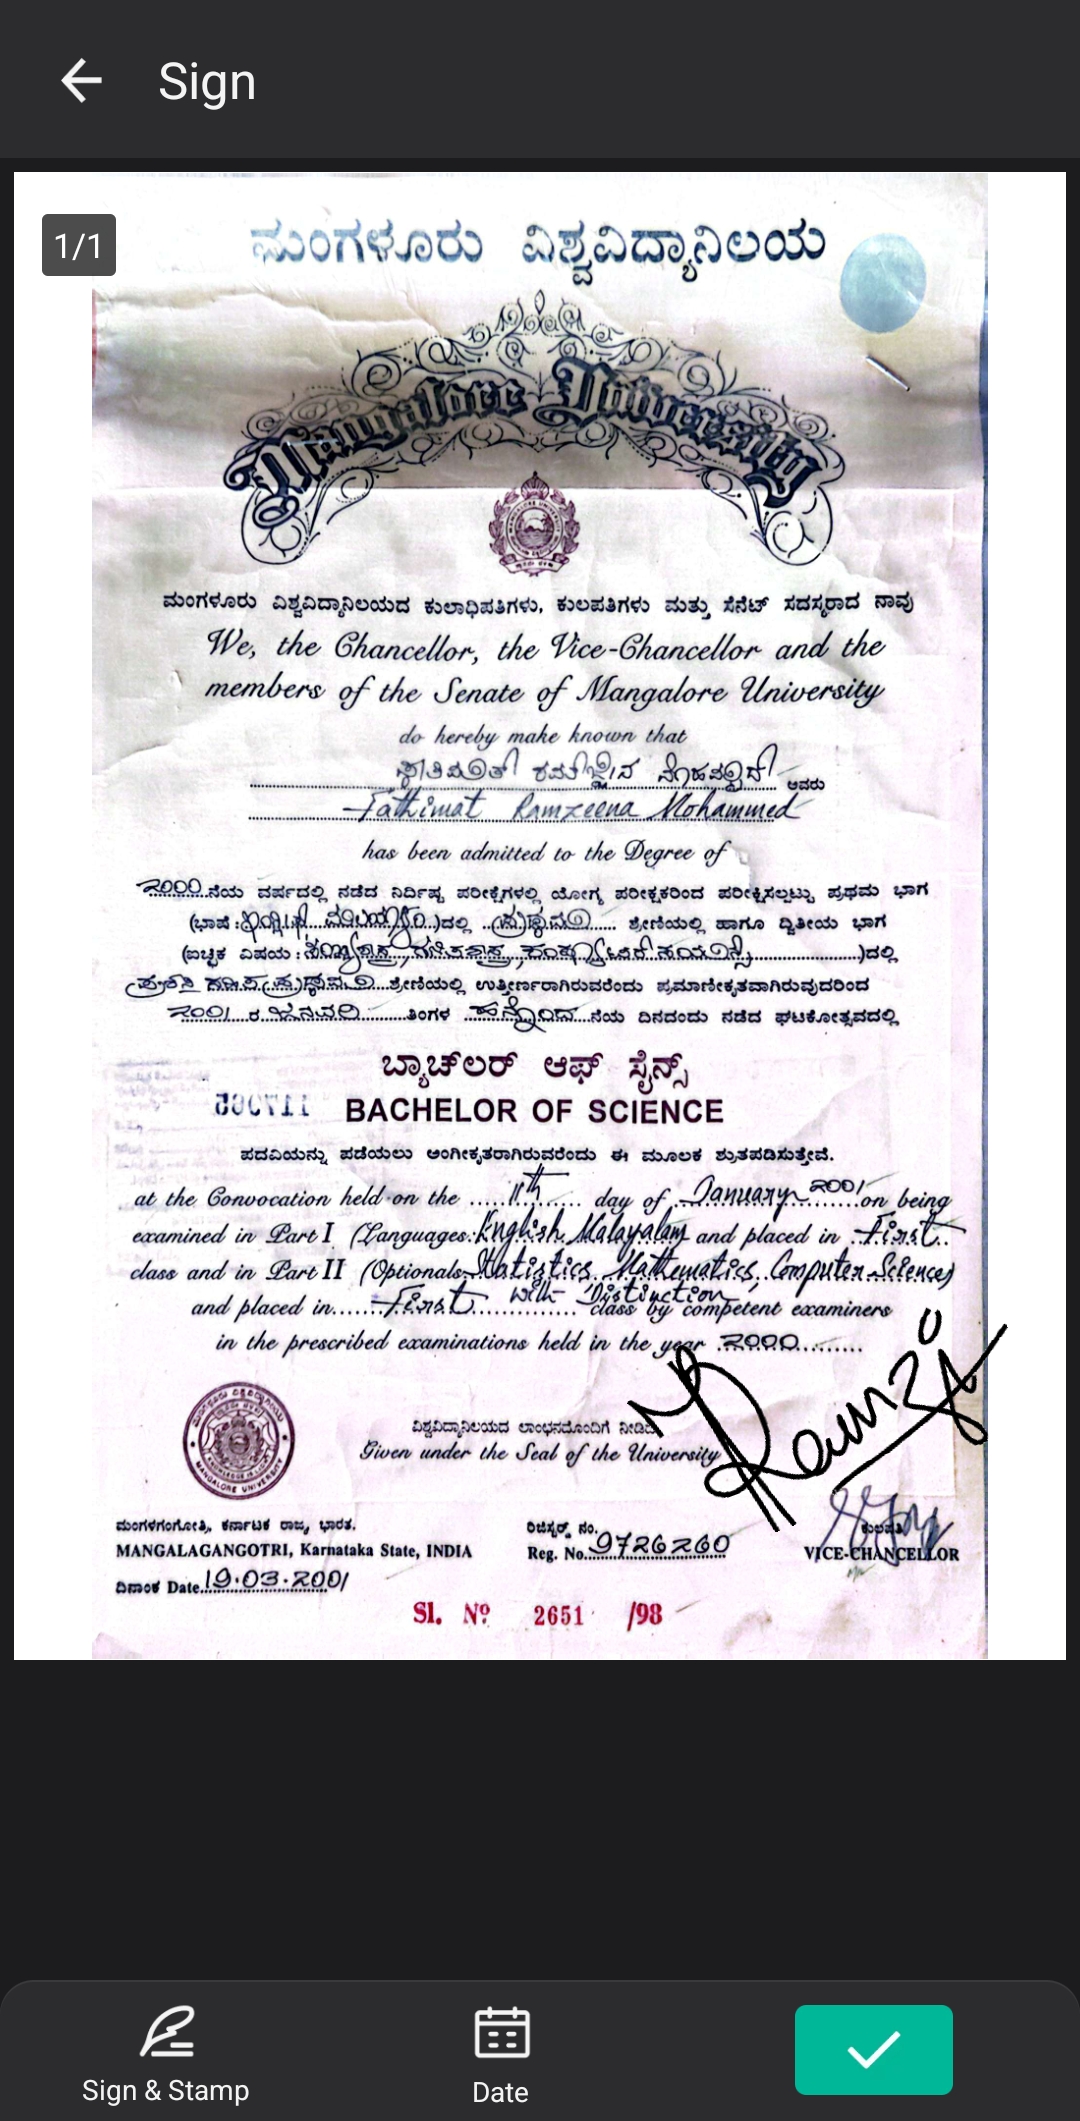 Sign
1/1
ಮಂಗಳೂರು ವಿಶ್ವವಿದ್ಯಾನಿಲಯ
Mangalore University
ಮಂಗಳೂರು ವಿಶ್ವವಿದ್ಯಾನಿಲಯದ ಕುಲಾಧಿಪತಿಗಳು, ಕುಲಪತಿಗಳು ಮತ್ತು ಸೆನೆಟ್ ಸದಸ್ಯರಾದ ನಾವು
We, the Chancellor, the Vice-Chancellor and the
members of the Senate of Mangalore University
do hereby make known that
ಅವರು
Fathimat Ramzeena Mohammed
has been admitted to the Degree of
2000 ನೆಯ ವರ್ಷದಲ್ಲಿ ನಡೆದ ನಿರ್ದಿಷ್ಟ ಪರೀಕ್ಷೆಗಳಲ್ಲಿ ಯೋಗ್ಯ ಪರೀಕ್ಷಕರಿಂದ ಪರೀಕ್ಷಿಸಲ್ಪಟ್ಟು ಪ್ರಥಮ ಭಾಗ
(ಭಾಷೆ : )ದಲ್ಲಿ ಪ್ರಥಮ ಶ್ರೇಣಿಯಲ್ಲಿ ಹಾಗೂ ದ್ವಿತೀಯ ಭಾಗ
(ಐಚ್ಛಿಕ ವಿಷಯ : )ದಲ್ಲಿ
ಶ್ರೇಣಿಯಲ್ಲಿ ಉತ್ತೀರ್ಣರಾಗಿರುವರೆಂದು ಪ್ರಮಾಣೀಕೃತವಾಗಿರುವುದರಿಂದ
2001 ರ ಜನವರಿ ತಿಂಗಳ ಹನ್ನೊಂದ ನೆಯ ದಿನದಂದು ನಡೆದ ಘಟಿಕೋತ್ಸವದಲ್ಲಿ
ಬ್ಯಾಚ್‌ಲರ್ ಆಫ್ ಸೈನ್ಸ್
BACHELOR OF SCIENCE
ಪದವಿಯನ್ನು ಪಡೆಯಲು ಅಂಗೀಕೃತರಾಗಿರುವರೆಂದು ಈ ಮೂಲಕ ಶ್ರುತಪಡಿಸುತ್ತೇವೆ.
at the Convocation held on the 11th day of January 2001 on being
examined in Part I (Languages: English, Malayalam and placed in First
class and in Part II (Optionals: Statistics, Mathematics, Computer Science)
and placed in First with Distinction class by competent examiners
in the prescribed examinations held in the year 2000
ವಿಶ್ವವಿದ್ಯಾನಿಲಯದ ಲಾಂಛನದೊಂದಿಗೆ ನೀಡಿದೆ
Given under the Seal of the University
ಮಂಗಳಗಂಗೋತ್ರಿ, ಕರ್ನಾಟಕ ರಾಜ್ಯ, ಭಾರತ.
MANGALAGANGOTRI, Karnataka State, INDIA
ದಿನಾಂಕ Date 19.03.2001
ರಿಜಿಸ್ಟರ್ ನಂ.
Reg. No. 9726260
ಕುಲಪತಿ
VICE-CHANCELLOR
Sl. Nº 2651 /98
Sign & Stamp
Date